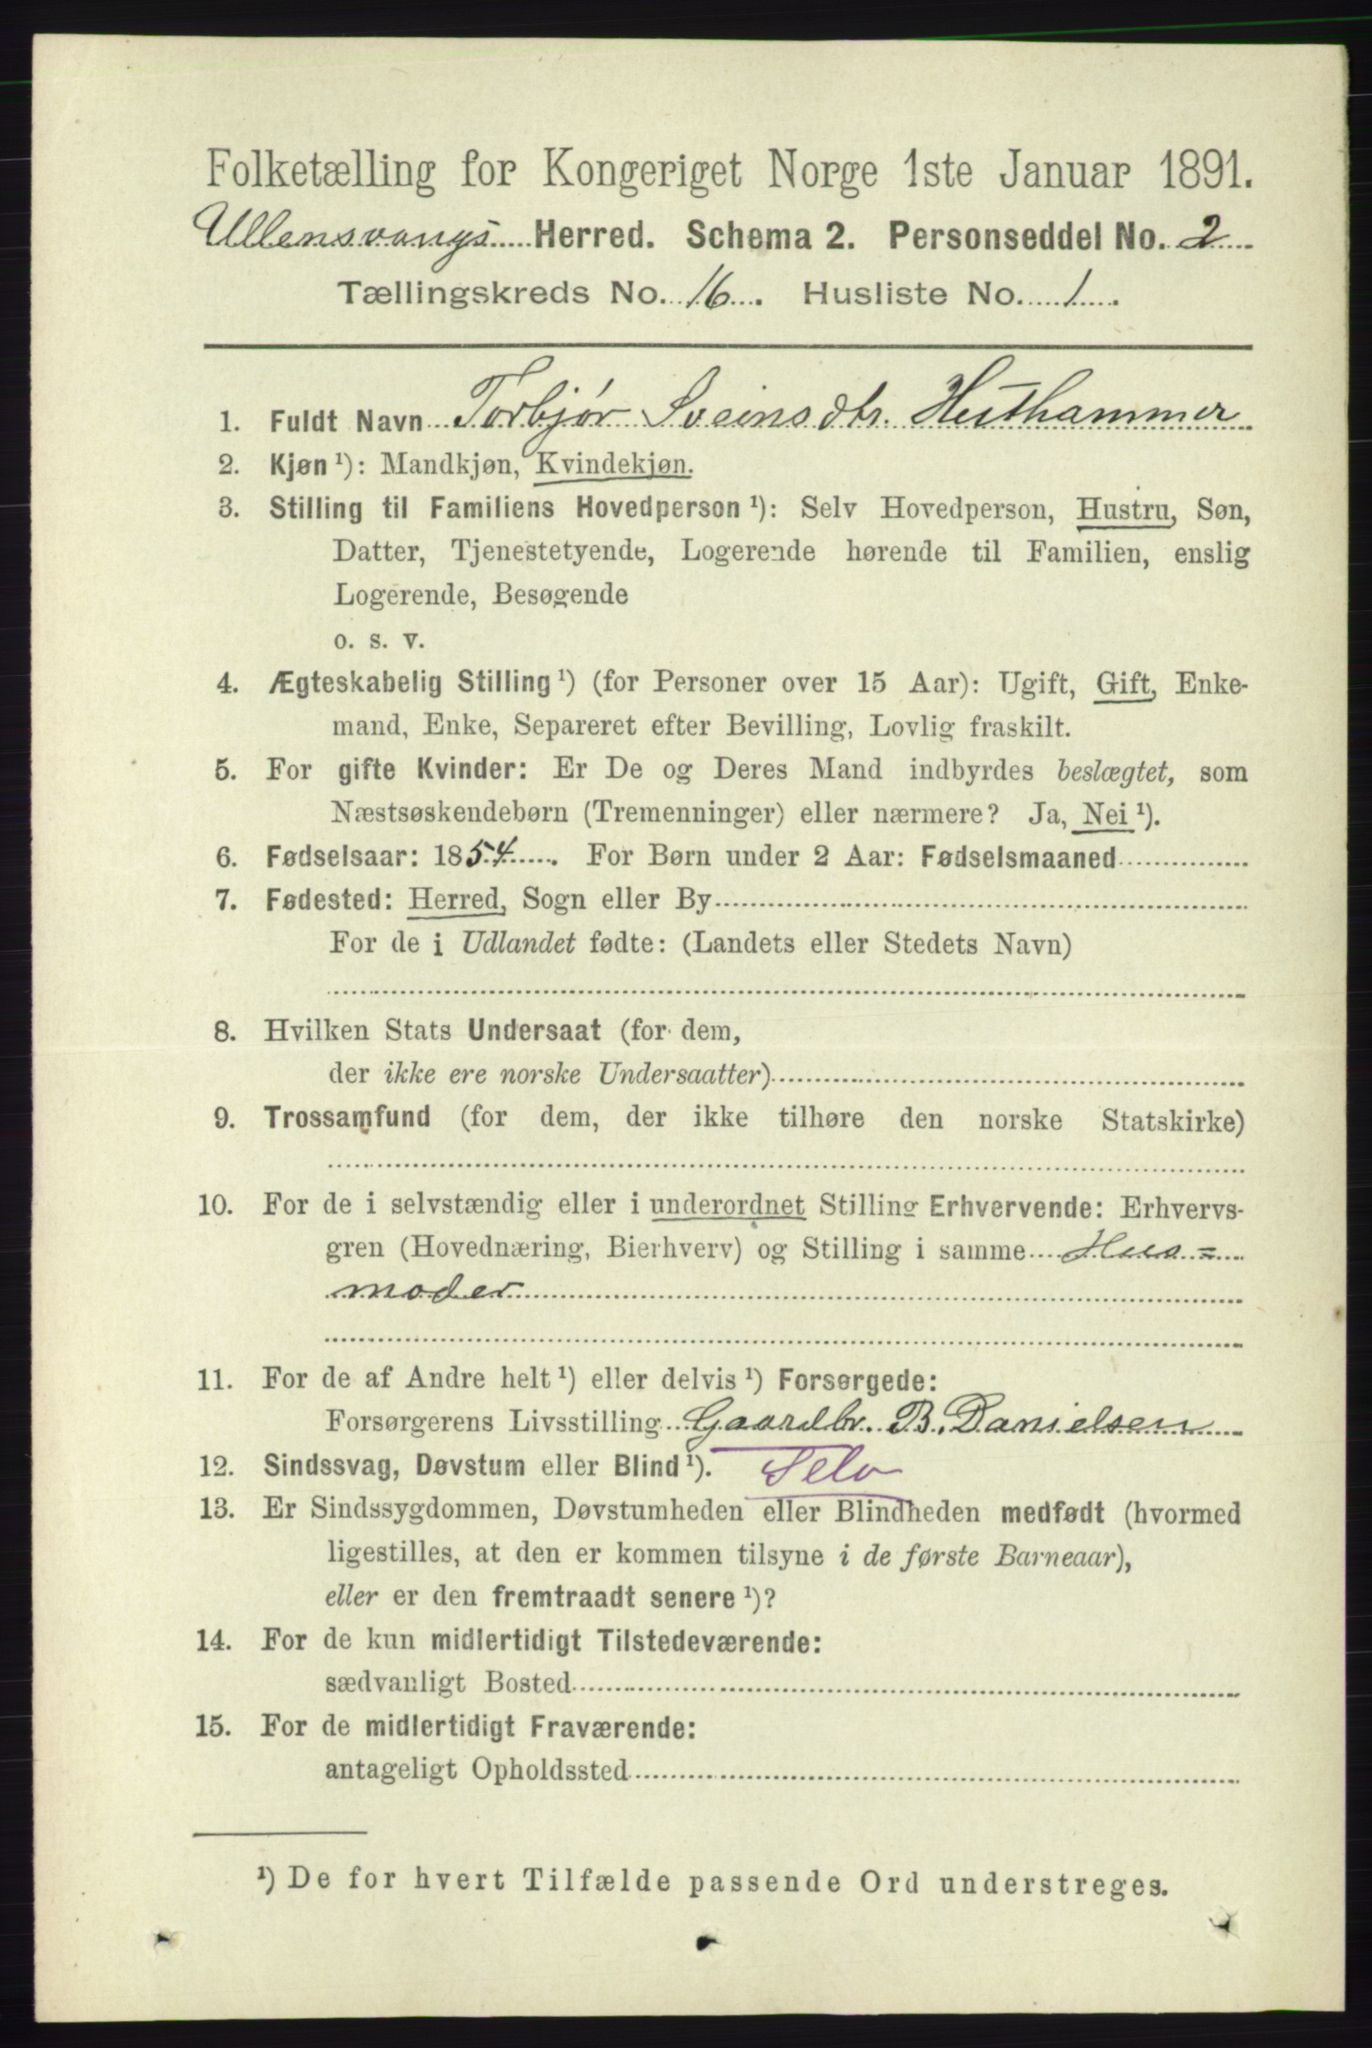 Folketælling for Kongeriget Norge 1ste Januar 1891.
Ullensvangs Herred. Schema 2. Personseddel No. 2
Tællingskreds No. 16. Husliste No. 1.
1. Fuldt Navn Torbjør Sveinsdtr. Huthammer
2. Kjøn ¹): Mandkjøn, Kvindekjøn.
3. Stilling til Familiens Hovedperson ¹): Selv Hovedperson, Hustru, Søn,
Datter, Tjenestetyende, Logerende hørende til Familien, enslig
Logerende, Besøgende
o. s. v.
4. Ægteskabelig Stilling ¹) (for Personer over 15 Aar): Ugift, Gift, Enke-
mand, Enke, Separeret efter Bevilling, Lovlig fraskilt.
5. For gifte Kvinder: Er De og Deres Mand indbyrdes beslægtet, som
Næstsøskendebørn (Tremenninger) eller nærmere? Ja, Nei ¹).
6. Fødselsaar: 1854. For Børn under 2 Aar: Fødselsmaaned
7. Fødested: Herred, Sogn eller By
For de i Udlandet fødte: (Landets eller Stedets Navn)
8. Hvilken Stats Undersaat (for dem,
der ikke ere norske Undersaatter)
9. Trossamfund (for dem, der ikke tilhøre den norske Statskirke)
10. For de i selvstændig eller i underordnet Stilling Erhvervende: Erhvervs-
gren (Hovednæring, Bierhverv) og Stilling i samme Hus=
moder
11. For de af Andre helt ¹) eller delvis ¹) Forsørgede:
Forsørgerens Livsstilling Gaardbr. B. Danielsen
12. Sindssvag, Døvstum eller Blind ¹). Selv
13. Er Sindssygdommen, Døvstumheden eller Blindheden medfødt (hvormed
ligestilles, at den er kommen tilsyne i de første Barneaar),
eller er den fremtraadt senere ¹)?
14. For de kun midlertidigt Tilstedeværende:
sædvanligt Bosted
15. For de midlertidigt Fraværende:
antageligt Opholdssted
¹) De for hvert Tilfælde passende Ord understreges.